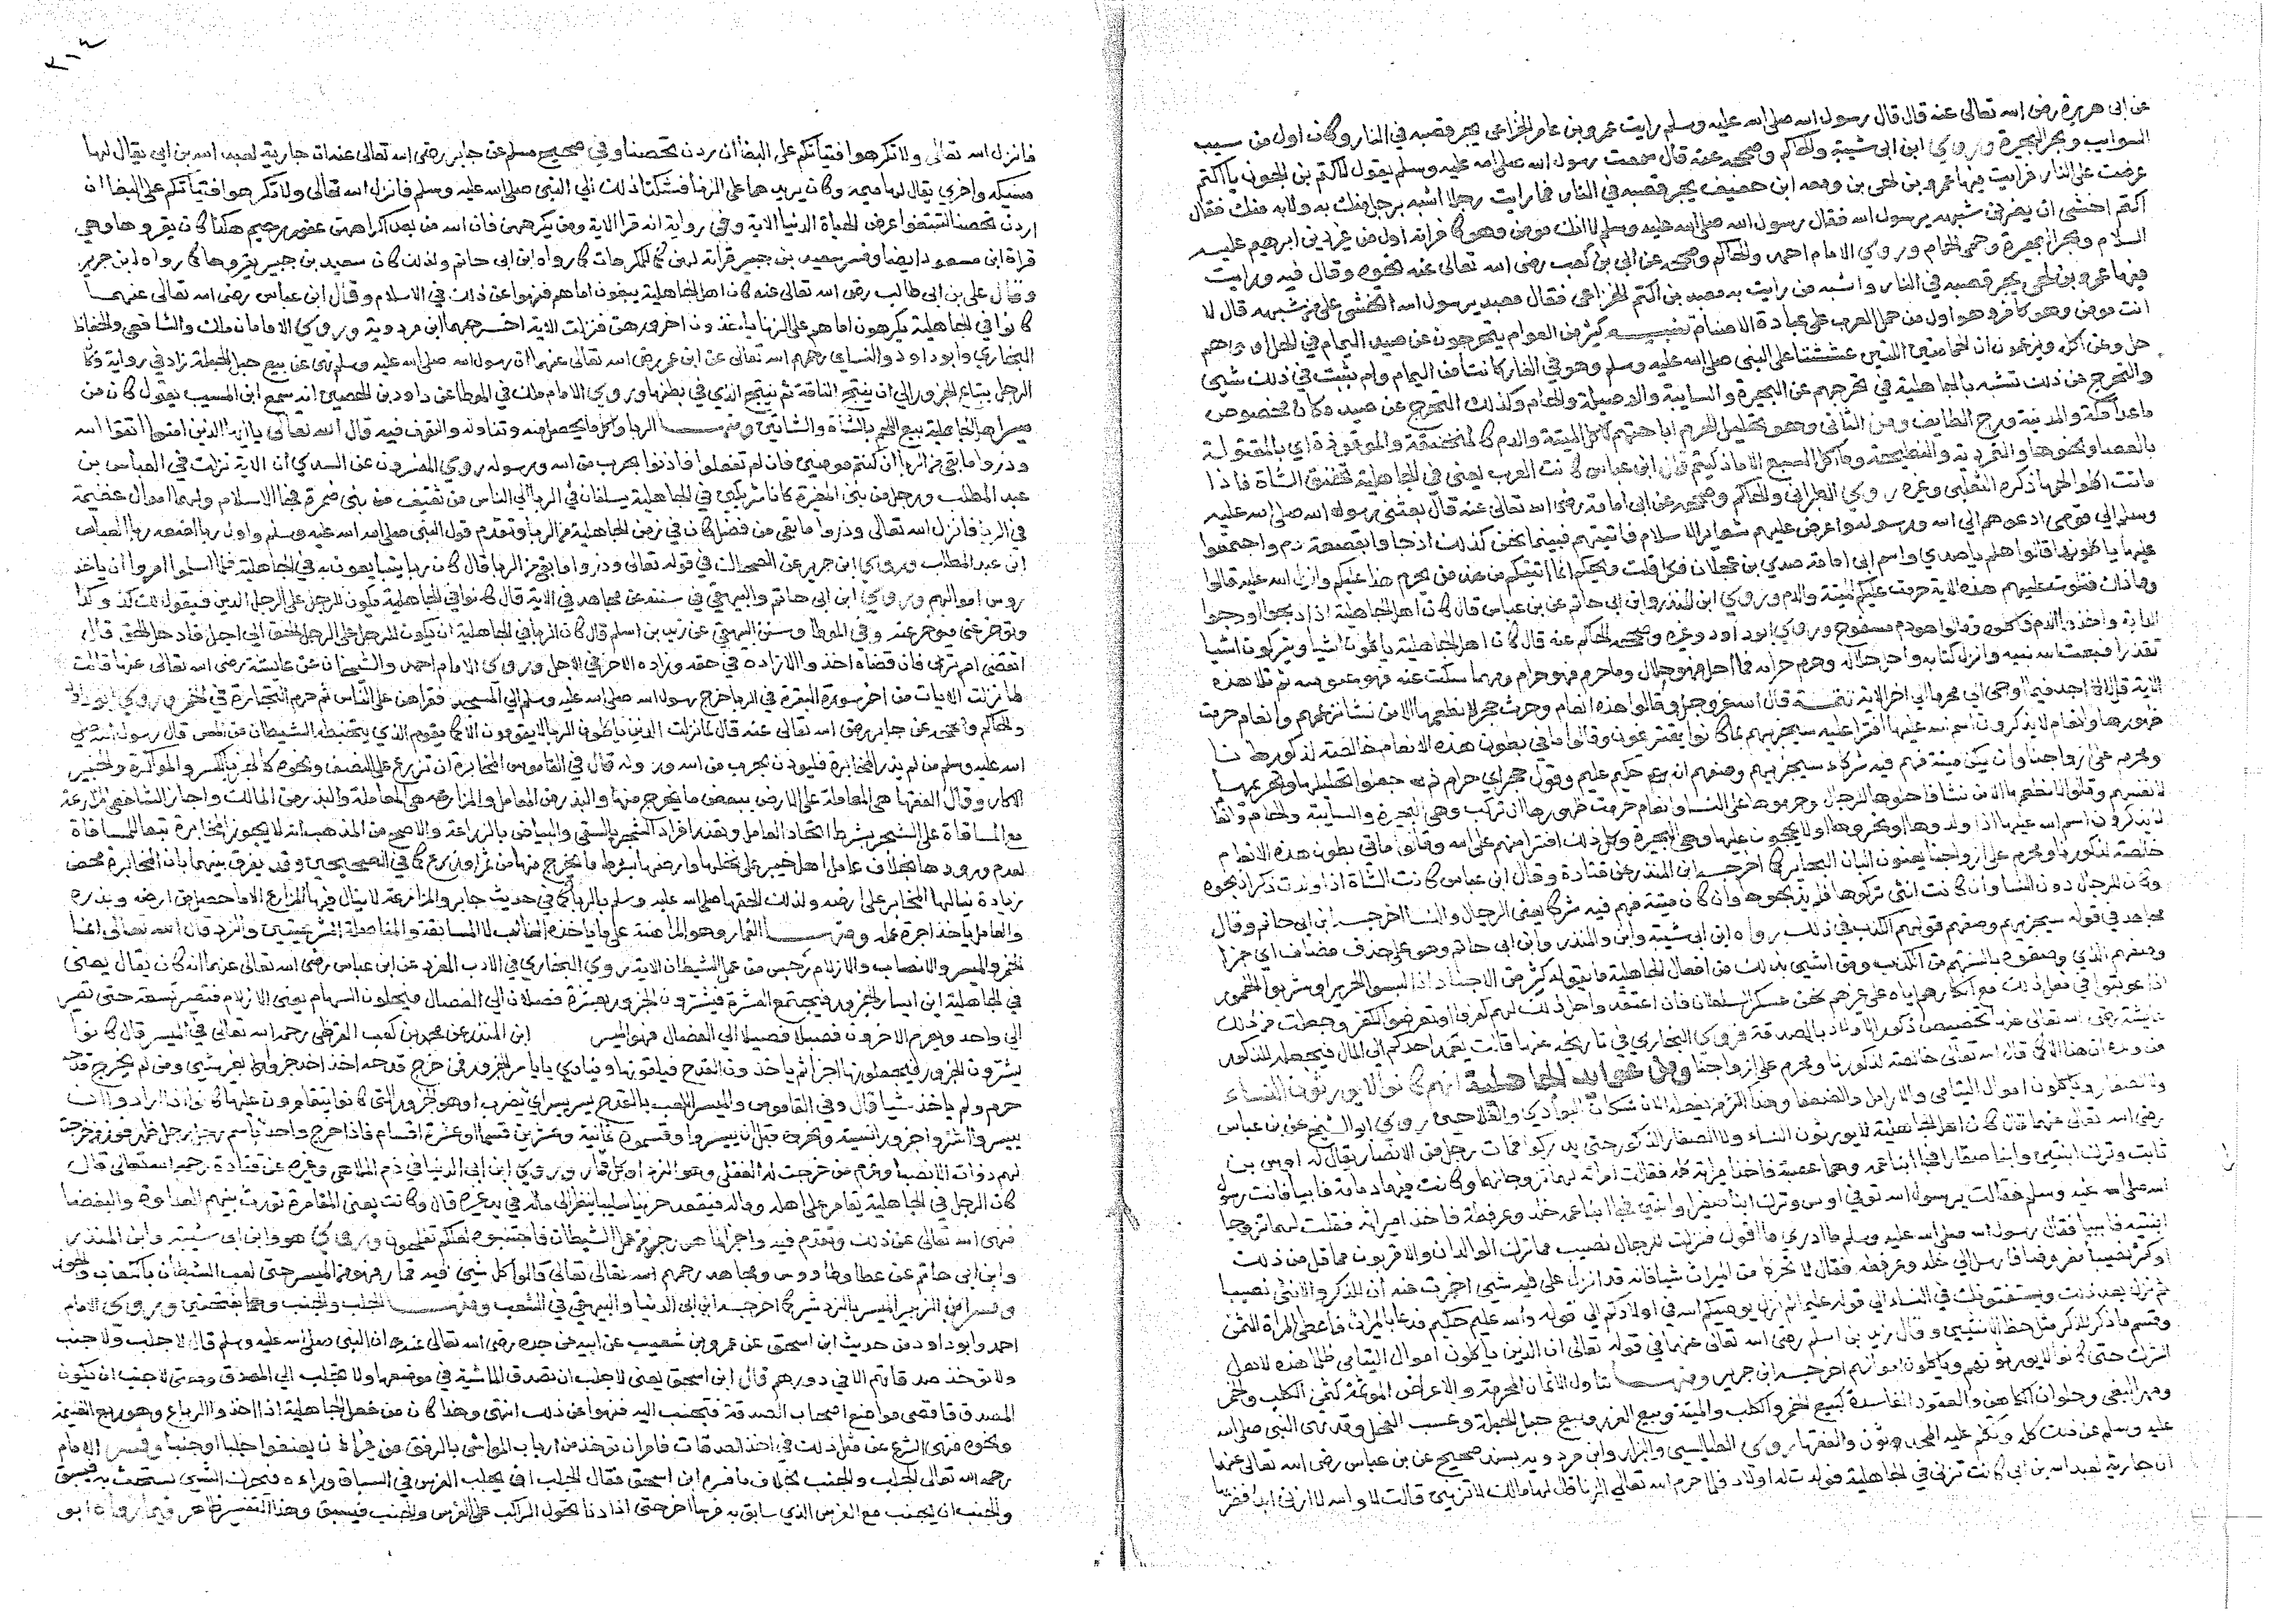 عن ابى هريرة رضى الله تعالى عنه قال قال رسول الله صلى الله عليه وسلم رايت عمرو بن عامر الخزاعى يجر قصبه في النار وكان اول من سيب
السوايب وبحر البحيرة وروي ابن ابى شيبة والحاكم وصححه عنه قال سمعت رسول الله صلى الله عليه وسلم يقول لاكثم بن الجون يا اكثم
عرضت على النار فرايت فيها عمرو بن لحى بن قمعه ابن خندف يجر قصبه في النار فما رايت رجلا اشبه برجل منك به ولا به منك فقال
اكثم اخشى ان يضرنى شبهه يرسول الله فقال رسول الله صلى الله عليه وسلم لا انك مومن وهو كافر انه اول من غير دين ابرهيم عليه
السلام وبحر البحيرة وحمى الحام وروي الامام احمد والحاكم وصححه عن ابي بن كعب رضى الله تعالى عنه نحوه وقال فيه ورايت
فيها عمرو بن لحى يجر قصبه في النار واشبه من رايت به معبد بن اكثم الخزاعى فقال معبد يرسول الله اتخشى على من شبهه قال لا
انت مومن وهو كافر وهو اول من حمل العرب على عبادة الاصنام تنبيه كثير من العوام يتحرجون عن صيد اليمام في الحل او
حل وعن اكله ويزعمون ان الحمامتين اللتين عششتا على النبى صلى الله عليه وسلم وهو في الغار كانتا من اليمام ولم يثبت في ذلك شيى
والتحرج من ذلك تشبه بالجاهلية في تحرجهم عن البحيرة والسايبة والوصيلة والحام وكذلك التحرج عن صيد مكان مخصوص
ماعدا مكة والمدينة ووج الطايف ومن الثانى وهو تحليل المحرم اباحتهم اكل الميتة والدم كالمنخنقة والموقوذة اي بالمقتولة
بالعصا ونحوها والمتردية والنطيحة وما اكل السبع الا ما ذكيتم قال ابن عباس كانت العرب يعنى في الجاهلية تخنق الشاة فاذا
ماتت اكلوا لحمها ذكره الثعلبى وغيره روي الطبرانى والحاكم وصححه عن ابى امامة رضى الله تعالى عنه قال بعثنى رسول الله صلى الله عليه
وسلم الى قومى ادعوهم الى الله ورسوله واعرض عليهم شعاير الاسلام فاتيتهم فبينما نحن كذلك اذ جاوا بقصعة دم واجتمعوا
عليها ياكلونها قالوا هلم يا صدي واسم ابى امامة صدي بن عجلان فكل قلت ويحكم انما اتيتكم من عند من يحرم هذا عليكم وانزل الله عليه قالوا
وما ذاك فتلوت عليهم هذه الاية حرمت عليكم الميتة والدم وروي ابن المنذر وابن ابى حاتم عن بن عباس قال كان اهل الجاهلية اذا ذبحوا اودجوا
الدابة واخذوا الدم فاكلوه وقالوا هو دم مسفوح وروي ابو داود وغيره وصححه الحاكم عنه قال كان اهل الجاهلية ياكلون اشيا ويتركون اشيا
تقذرا فبعث الله نبيه وانزل كتابه واحل حلاله وحرم حرامه فما احل فهو حلال وما حرم فهو حرام وما سكت عنه فهو عفو منه ثم تلا هذه
الاية قل لا اجد فيما اوحى الى محرما الى اخر الاية تتمة قال الله عز وجل وقالوا هذه انعام وحرث حجر لا يطعمها الا من نشا بزعمهم وانعام حرمت
ظهورها وانعام لا يذكرون اسم الله عليها افترا عليه سيجزيهم بما كانوا يفترون وقالوا ما في بطون هذه الانعام خالصة لذكورنا
ومحرم على ازواجنا وان يكن ميتة فهم فيه شركاء سيجزيهم وصفهم انه حكيم عليم
لانفسهم وقالوا لا نطعمها الا من نشا فاحلوها للرجال وحرموها على النسا وانعام حرمت ظهورها ان تركب وهى البحيرة والسايبة والحام وانعام
لا يذكرون اسم الله عليها اذا ولدوها او نحروها اولا يحجون عليها وهى البحيرة وكل ذلك افترا منهم على الله وقالوا ما في بطون هذه الانعام
خالصة لذكورنا ومحرم على ازواجنا يعنون البان البحاير كما اخرجه ابن المنذر عن قتادة وقال ابن عباس كانت الشاة اذا ولدت ذكرا ذبحوه
وكان للرجال دون النسا وان كانت انثى تركوها فلم يذبحوها وان كان ميتة فهم فيه شركا يعنى الرجال والنسا اخرجه ابن ابى حاتم وقال
مجاهد في قوله سيجزيهم وصفهم قولهم الكذب في ذلك رواه ابن ابى شيبة وابن المنذر وابن ابى حاتم وهو على حذف مضاف اي جزا
وصفهم الذي وصفوه بالسنتهم من الكذب ومن اشبى بذلك من افعال الجاهلية ما يقوله كثير من الاجناد اذا لبسوا الحرير او شربوا الخمور
اذا عوتبوا في فعل ذلك مع انكارهم اياه على غيرهم نحن عسكر السلطان فان اعتقدوا حل ذلك لهم كفروا او تعرضوا للكفر وجعلت من ذلك
عايشة رضى الله تعالى عنها تخصيص ذكور الاولاد بالصدقة فروي البخاري في تاريخه عنها قالت يعمد احدكم الى المال فيجعله للذكور
من ولده ان هذا الا كما قال الله تعالى خالصة لذكورنا ومحرم على ازواجنا ومن عوايد الجاهلية انهم كانوا لا يورثون النساء
ولا الصغار وياكلون اموال اليتامى والارامل والضعفا وهذا اكثرهم يفعله الان سكان البوادي والفلاحين روي ابو الشيخ عن بن عباس
رضى الله تعالى عنهما قال كان اهل الجاهلية لا يورثون النساء ولا الصغار الذكور حتى يدركوا فمات رجل من الانصار يقال له اوس بن
ثابت وترك ابنتين وابنا صغيرا فجا ابنا عمه وهما عصبة فاخذا ميراثه كله فقالت امراته لهما تزوجا بهما وكانت فيهما دمامة فابيا فاتت رسول
الله صلى الله عليه وسلم فقالت يرسول الله توفي اوس وترك ابنا صغيرا وابنتين فجا ابنا عمه خلد وعرفطة فاخذا ميراثه فقلت لهما تزوجا
ابنتيه فابيا فقال رسول الله صلى الله عليه وسلم ما ادري ما اقول فنزلت للرجال نصيب مما ترك الوالدان والاقربون مما قل من ذلك
او كثر نصيبا مفروضا فارسل الى خلد وعرفطه فقال لا تحركا من الميراث شيا فانه قد انزل على فيه شيى اخبرت عنه ان للذكر والانثى نصيبا
ثم نزل بعد ذلك ويستفتونك في النساء الى قوله عليما ثم نزل يوصيكم الله في اولادكم الى قوله والله عليم حكيم فدعا بالميراث فاعطى المراة الثمن
وقسم ما ذكر للذكر مثل حظ الانثيين وقال زيد بن اسلم رضى الله تعالى عنهما في قوله تعالى ان الذين ياكلون اموال اليتامى ظلما هذه لاهل
الشرك حتى كانوا لا يورثونهم وياكلون اموالهم اخرجه ابن جرير ومنها تناول الاثمان المحرمة والاعراض الموثمة كثمن الكلب والخمر
ومهر البغي وحلوان الكاهن والعقود الفاسدة كبيع الخمر والكلب والميتة وبيع الغرر وبيع حبل الحبلة وعسب الفحل وقد نهى النبى صلى الله
عليه وسلم عن ذلك كله وتكلم عليه المحدثون والفقها روي الطيالسي والبزار وابن مردويه بسند صحيح عن بن عباس رضى الله تعالى عنهما
ان جارية لعبد الله بن ابى كانت تزنى في الجاهلية فولدت له اولاد فلما حرم الله تعالى الزنا قال لها مالك لا تزنين قالت لا والله لا ازنى ابدا فضربها
فانزل الله تعالى ولا تكرهوا فتياتكم على البغا ان اردن تحصنا وفي صحيح مسلم عن جابر رضى الله تعالى عنه ان جارية لعبد الله بن ابي يقال لها
مسيكه واخري يقال لها اميمه وكان يريدهما على الزنا فشكتا ذلك الي النبى صلى الله عليه وسلم فانزل الله تعالى ولا تكرهوا فتياتكم على البغا ان
اردن تحصنا لتبتغوا عرض الحياة الدنيا الاية وفي رواية انه قرا الاية ومن يكرههن فان الله من بعد اكراههن غفور رحيم هكذا كان يقروها وهى
قراة ابن مسعود ايضا وفسر سعيد بن جبير قراته لهن كما للمكرهات كما رواه ابن ابى حاتم ولذلك كان سعيد بن جبير يقروها كما رواه ابن جرير
وقال على بن ابى طالب رضى الله تعالى عنه كان اهل الجاهلية يبغون اماهم فنهوا عن ذلك في الاسلام وقال ابن عباس رضى الله تعالى عنهما
كانوا في الجاهلية يكرهون اماهم على الزنا ياخذون اجورهن فنزلت الاية اخرجهما ابن مردوية وروي الامامان ملك والشافعى والحفاظ
البخاري وابو داود والنساي رحمهم الله تعالى عن ابن عمر رضى الله تعالى عنهما ان رسول الله صلى الله عليه وسلم نهى عن بيع حبل الحبلة زاد في رواية وكان
الرجل يبتاع الجزور الي ان ينتج الناقة ثم ينتج الذي في بطنها وروي الامام ملك في الموطا عن داود بن الحصين انه سمع ابن المسيب يقول كان من
ميسر اهل الجاهلية بيع اللحم بالشاة والشاتين ومنها الربا وكل ما يحصل منه وتناوله والتوقف فيه قال الله تعالى يا ايها الذين امنوا اتقوا الله
وذروا ما بقى من الربا ان كنتم مومنين فان لم تفعلوا فاذنوا بحرب من الله ورسوله روي المفسرون عن السدي ان الاية نزلت في العباس بن
عبد المطلب ورجل من بنى المغيرة كانا شريكين في الجاهلية يسلفان في الربا الي الناس من ثقيف من بنى ضمرة فجا الاسلام ولهما اموال عظيمة
في الربا فانزل الله تعالى وذروا ما بقي من فضل كان في زمن الجاهلية من الربا وتقدم قول النبى صلى الله عليه وسلم واول ربا اضعه ربا العباس
ابن عبد المطلب وروي ابن جرير عن الضحاك في قوله تعالى وذروا ما بقى من الربا قال كان ربا يتبايعون به في الجاهلية فلما اسلموا امروا ان ياخذوا
روس اموالهم وروي ابن ابى حاتم والبيهقى في سننه عن مجاهد في الاية قال كانوا في الجاهلية يكون للرجل على الرجل الدين فيقول لك كذا وكذا
وتوخر عنى فيوخر عنه وفي الموطا وسنن البيهقى عن زيد بن اسلم قال كان الربا في الجاهلية ان يكون للرجل على الرجل الحق الي اجل فاذا حل الحق قال
اتقضى ام تربى فان قضاه اخذ والا زاده في حقه وزاده الاخر في الاجل وروي الامام احمد والشيخان عن عايشة رضى الله تعالى عنها قالت
لما نزلت الايات من اخر سورة البقرة في الربا خرج رسول الله صلى الله عليه وسلم الي المسجد فقراهن على الناس ثم حرم التجارة في الخمر وروي ابو داود
والحاكم وصححه عن جابر رضى الله تعالى عنه قال لما نزلت الذين ياكلون الربا لا يقومون الا كما يقوم الذي يتخبطه الشيطان من المس قال رسول الله صلى
الله عليه وسلم من لم يذر المخابرة فليوذن بحرب من الله ورسوله قال في القاموس المخابرة ان تزرع على النصف ونحوه كالخبر بالكسر والمواكرة والخبير
الاكار وقال الفقها هى المعاملة على الارض ببعض ما يخرج منها والبذر من العامل والمزارعه هى المعاملة والبذر من المالك واجاز الشافعى المزارعة
مع المساقاة على الشجر بشرط اتحاد العامل وتعذر افراد الشجر بالسقى والبياض بالزراعة والاصح من المذهب انه لا يجوز المخابرة تبعا للمساقاة
لعدم ورودها بخلاف عامل اهل خيبر على نخلها وارضها بشرط ما يخرج منها من ثمر او زرع كما في الصحيحين وقد يفرق بينهما بان المخابرة محض
زيادة ينالها المخابر على ارضه ولذلك الحقها صلى الله عليه وسلم بالربا كما في حديث جابر والمزارعة لا ينال فيها المزارع الا ما حصل من ارضه وبذره
والعامل ياخذ اجرة عمله ومنها القمار وهو المراهنة على ما ياخذه الغالب لا المسابقة والمناضلة الشرعيتين والنرد قال الله تعالى انما
الخمر والميسر والانصاب والازلام رجس من عمل الشيطان الاية روي البخاري في الادب المفرد عن ابن عباس رضى الله تعالى عنهما انه كان يقال يعنى
في الجاهلية اين ايسار الجزور فيجتمع العشرة فيشترون الجزور بعشرة فصلان الي الفصال فيجيلون السهام يعنى الازلام فتصير تسعة حتى تصير
الي واحد ويغرم الاخرون فصيلا فصيلا الي الفصال فهو الميسر ابن المنذر عن محمد بن كعب القرظى رحمه الله تعالى في الميسر قال كانوا
يشترون الجزور فيجعلونها اجزا ثم ياخذون القداح فيلقونها وينادي يا ياسر الجزور فمن خرج قدحه اخذ اخذ جزوا بغير شيى ومن لم يخرج قدحه
حرم ولم ياخذ شيا قال وفي القاموس والميسر اللعب بالقداح يسر ييسراي ضرب او هو الجزور التى كانوا يتقامرون عليها كانوا اذا ارادوا ان
ييسروا اشتروا جزورا نسيئة ونحروه قبل ان ييسروا وقسموه ثمانية وعشرين قسما او عشرة اقسام فاذا خرج واحد باسم رجل رجل ظهر فوز من خرجت
لهم ذوات الانصبا وغرم من خرجت له الغفل وهو النرد او كل قمار وروي ابن ابى الدنيا في ذم الملاهى وغيره عن قتادة رحمه الله تعالى قال
كان الرجل في الجاهلية يقامر على اهله وماله فيقعد حزينا سليبا ينظر الى ماله في يد غيره قال وكانت يعنى المقامرة تورث بينهم العداوة والبغضا
فنهى الله تعالى عن ذلك وتقدم فيه واخبر انما هو رجس من عمل الشيطان فاجتنبوه لعلكم تفلحون وروي هو وابن ابى شيبة وابن المنذر
وابن ابى حاتم عن عطا وطاووس ومجاهد رحمهم الله تعالى قالوا كل شيى فيه قمار فهو من الميسر حتى لعب الصبيان بالكعاب والجوز
وفسر ابن الزبير الميسر بالنردشير كما اخرجه ابن ابى الدنيا والبيهقى في الشعب ومنها الجلب والجنب وهما بفتحتين وروي الامام
احمد وابو داود من حديث ابن اسحق عن عمرو بن شعيب عن ابيه عن جده رضى الله تعالى عنه ان النبى صلى الله عليه وسلم قال لا جلب ولا جنب
ولا توخذ صدقاتهم الا في دورهم قال ابن اسحق يعنى لا جلب ان تصدق الماشية في موضعها ولا تجلب الي المصدق ومعنى لا جنب ان يكون
المصدق باقصى مواضع اصحاب الصدقة فتجنب اليه فنهوا عن ذلك انتهى وهذا كان من فعل الجاهلية اذا اخذوا الرباع وهو ربع الغنيمة
ونحوه فنهى الشرع عن مثل ذلك في اخذ الصدقات فامر ان توخذ من ارباب المواشى بالرفق من غير ان يعنفوا جلبا او جنبا وفسر الامام
رحمه الله تعالى الجلب والجنب بخلاف ما فسره ابن اسحق فقال الجلب ان يجلب الفرس في السباق وراءه فيحرك الشيى يستحث به فيسبق
والجنب ان يجنب مع الفرس الذي سابق به فرسا اخر حتى اذا دنا تحول الراكب على الفرس والجنب فيسبق وهذا التفسير ظاهر فيما رواه ابو